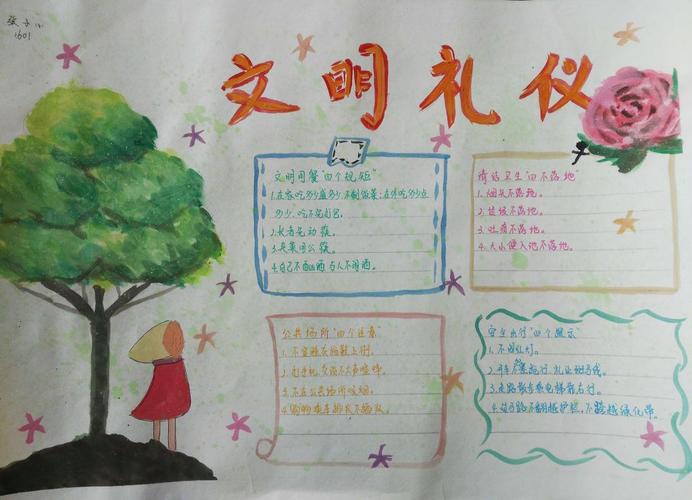 张子
1601
文明礼仪
文明用餐"四个规矩"
1.在家吃多少盛多少,不剩饭菜;在外吃多少点
多少,吃不完打包。
2.长者先动筷。
3.夹菜用公筷。
4.自己不酗酒 与人不闹酒。
清洁卫生"四不落地"
1.烟头不落地。
2.垃圾不落地。
3.吐痰不落地。
4.大小便入池不落地。
公共场所"四个注意"
1.不穿睡衣拖鞋上街。
2.打手机交谈不大声喧哗。
3.不在公共场所吸烟。
4.购物乘车排队不插队。
安全出行"四个提示"
1.不闯红灯。
2.开车不 行,礼让斑马线。
3.走路散步乘电梯靠右行。
4.过马路不翻越护栏,不踏越绿化带。